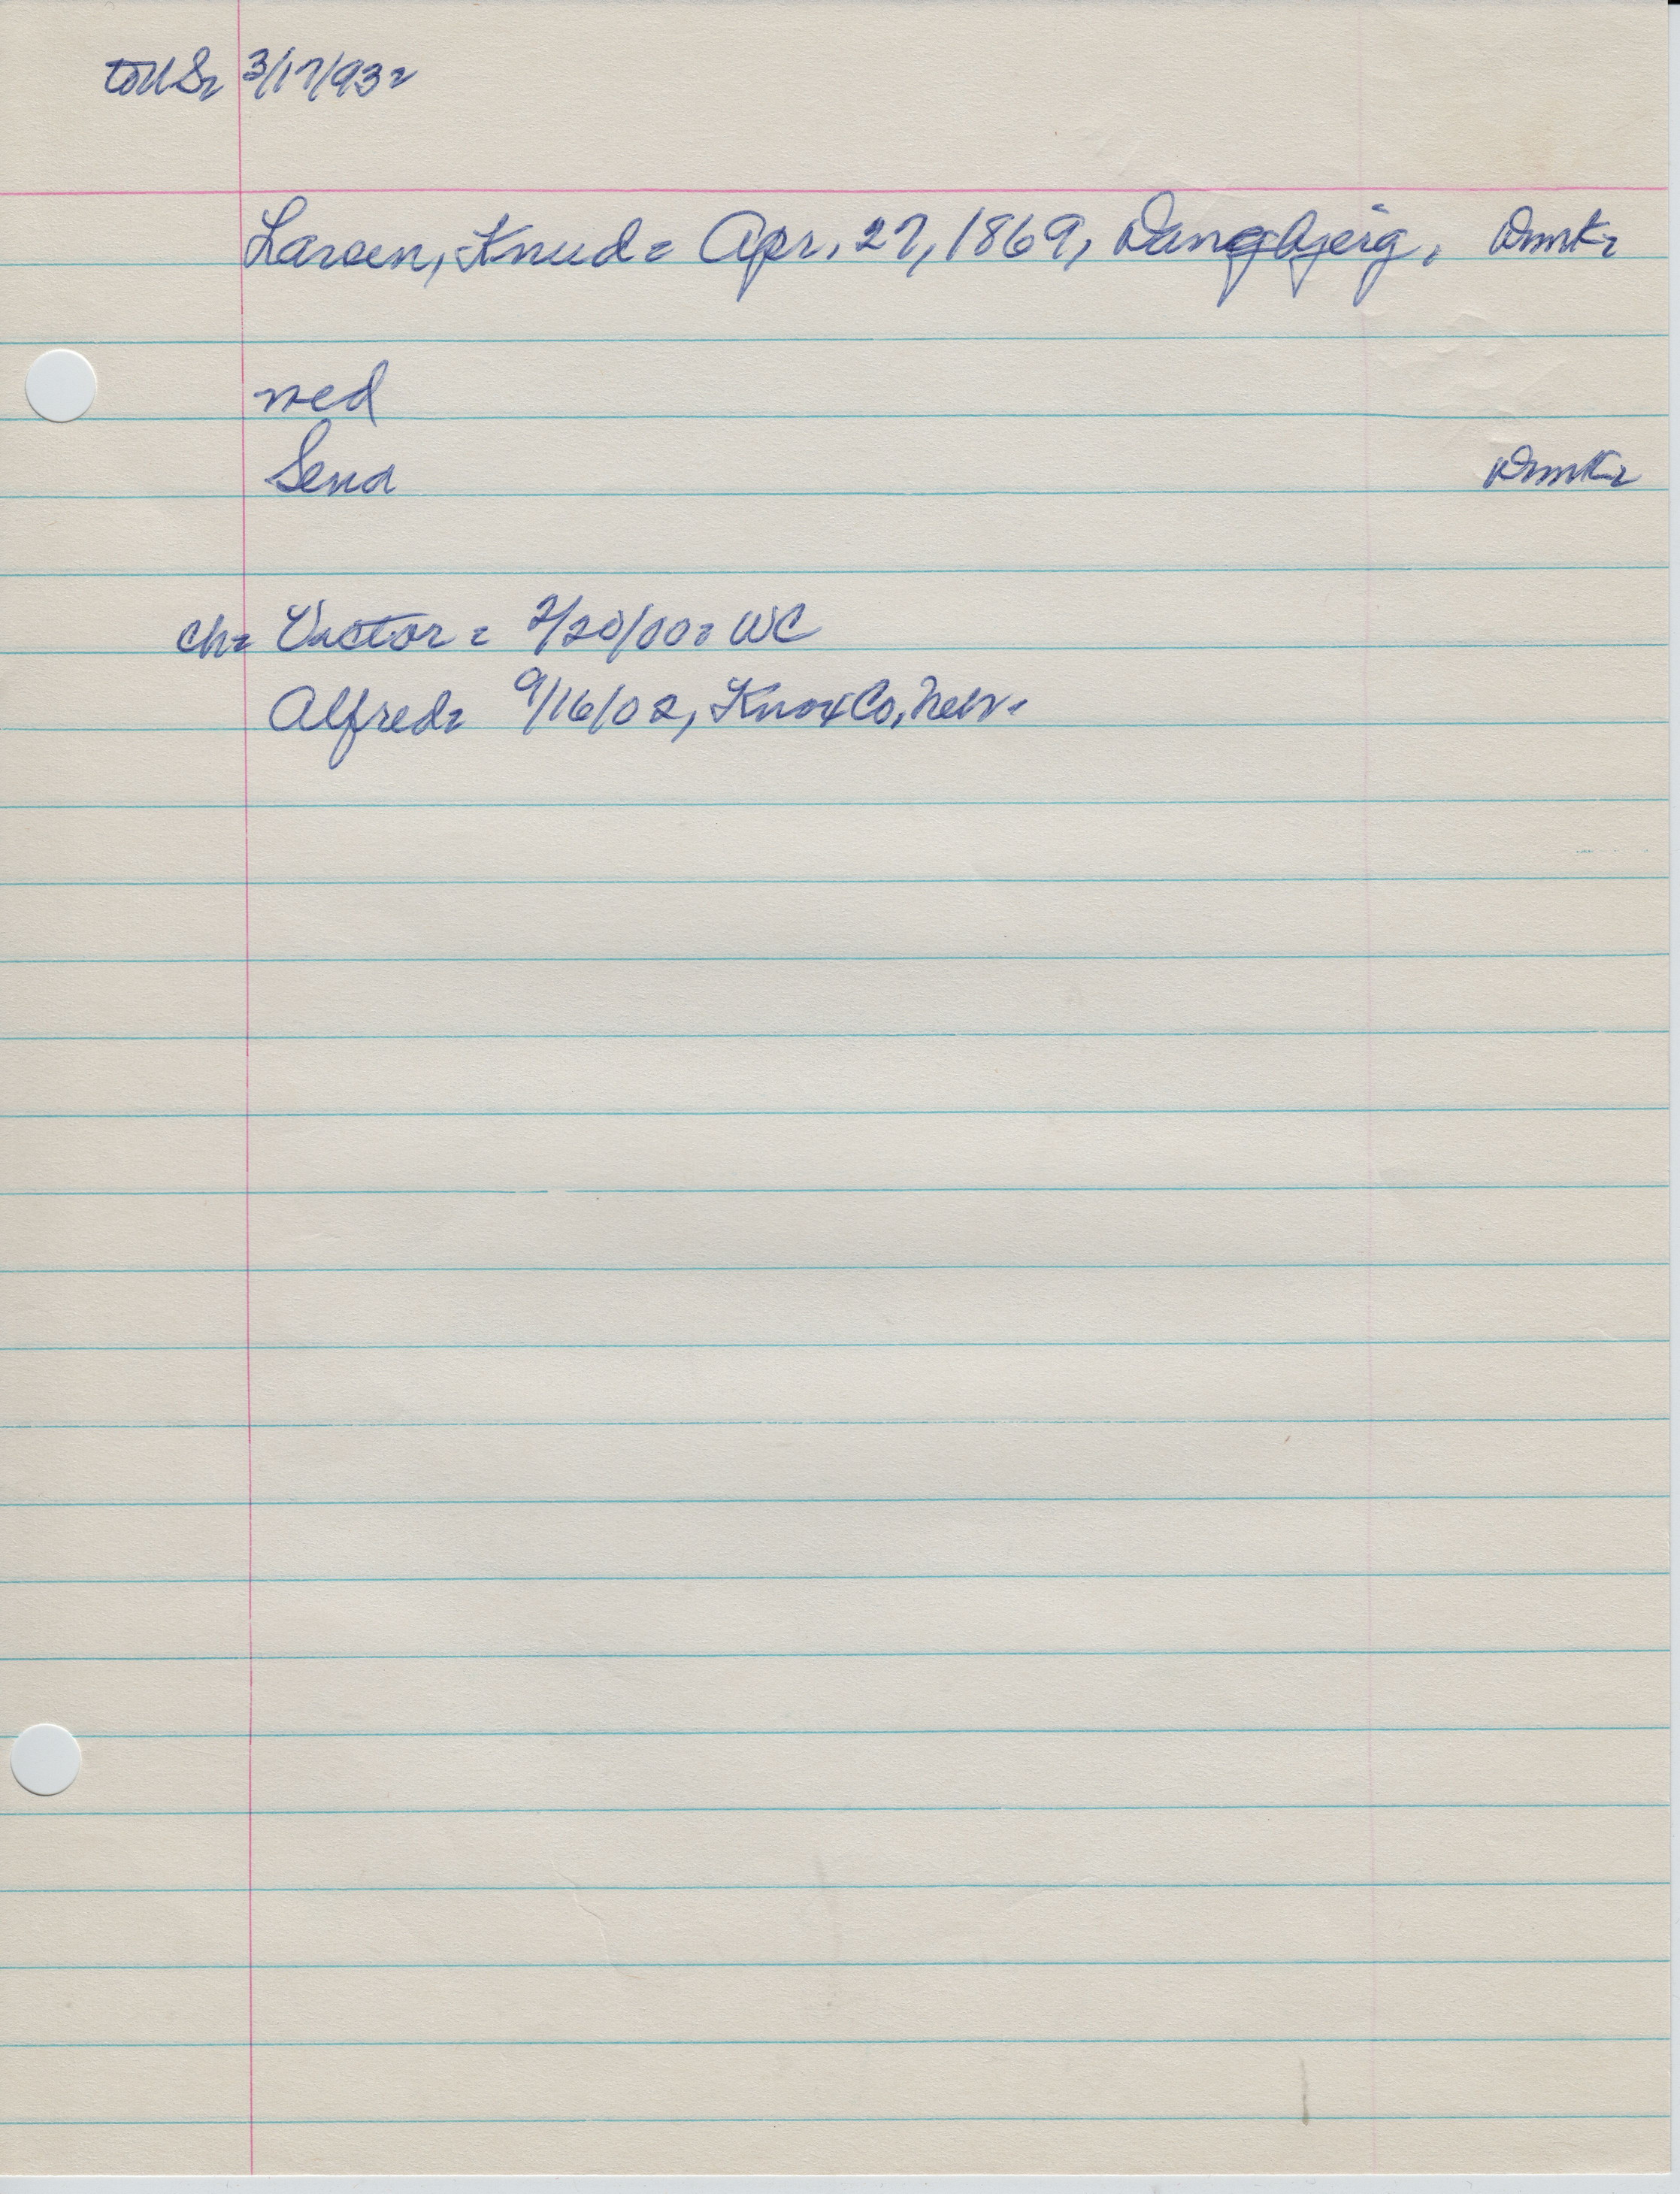 to US= 3/17/93=
Larsen, Knud= Apr. 27, 1869, Dangbjerg, Dmk=
med
Sena Dmk=
ch= Victor= 2/20/00= WC
Alfred= 9/16/02, Knox Co, Nebr.